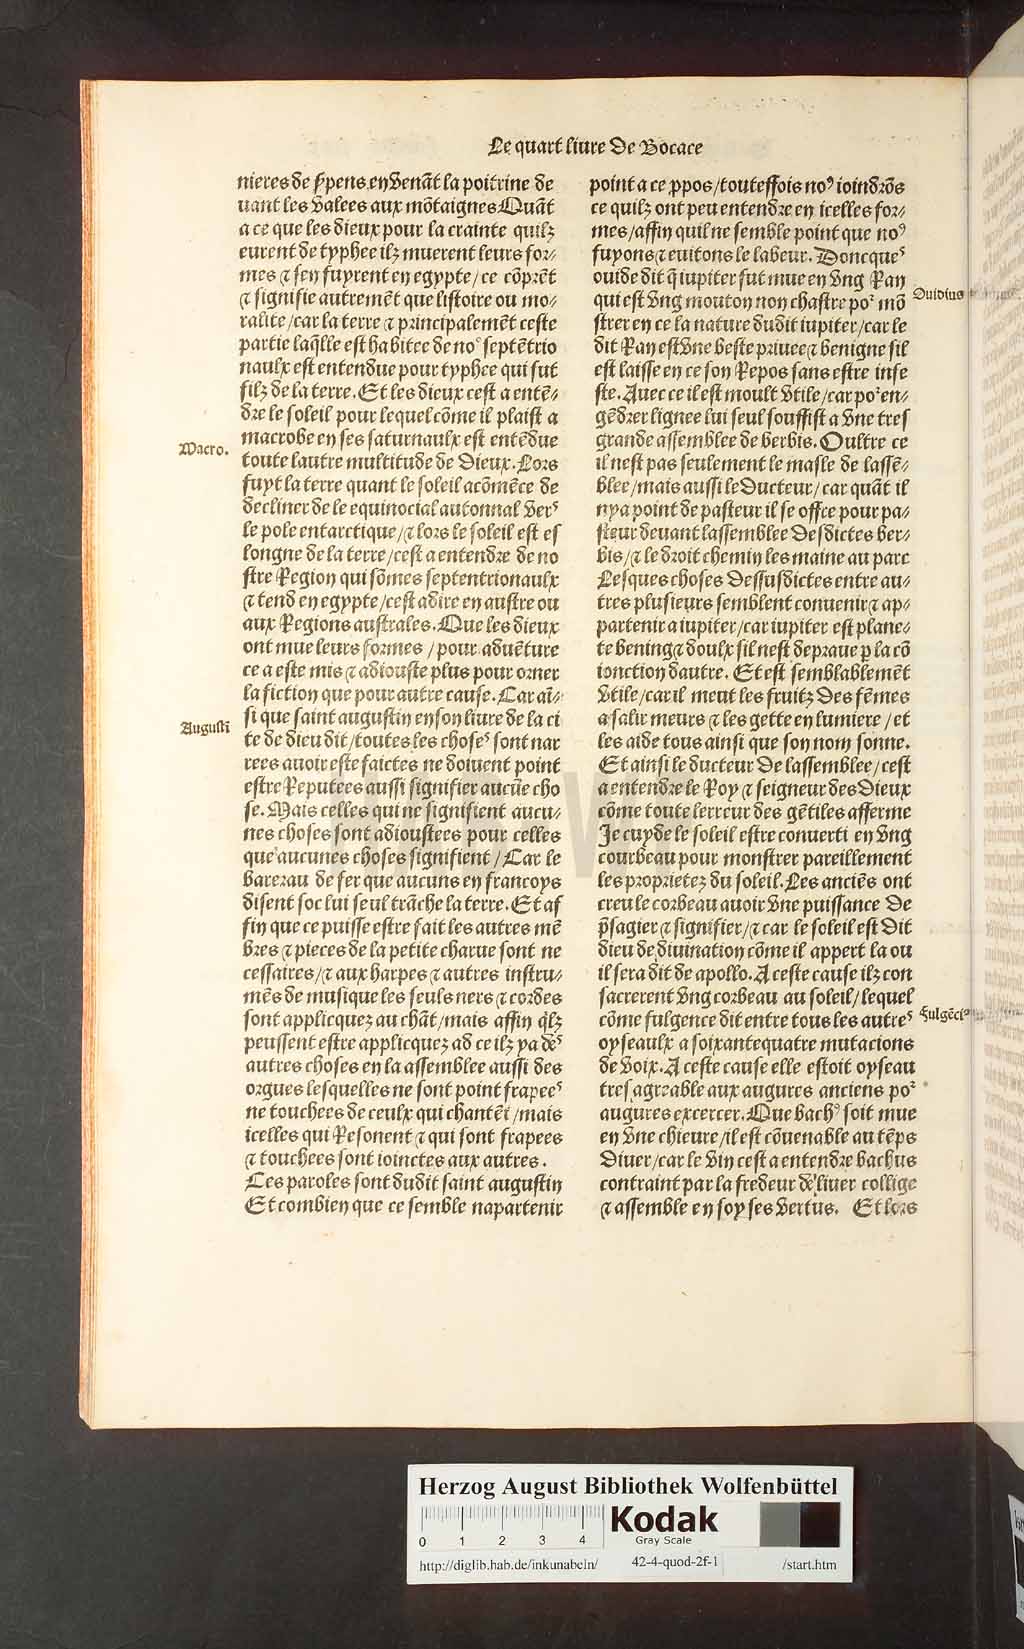 Le quart liure De Bocace
nieres de sp̱ens en venãt la poitrine de
uant les valees aux mõtaignes Quãt
a ce que les dieux pour la crainte quilz
eurent de typhee ilz muerent leurs for⸗
mes ⁊ sen fuyrent en egypte/ce cõprẽt
⁊ signifie autremẽt que listoire ou mo⸗
ralite/car la terre ⁊ principalemẽt ceste
partie laq̃lle est habitee de noꝰ septẽtrio
naulx est entendue pour typhee qui fut
filz de la terre. Et les dieux cest a entẽ⸗
dre le soleil pour lequel cõme il plaist a
macrobe en ses saturnaulx est entẽdue
toute lautre multitude de Dieux. Lors
fuyt la terre quant le soleil acõmẽce de
decliner de le equinocial autonnal versˢ
le pole entarctique/⁊ lors le soleil est es
longne de la terre/cest a entendre de no
stre Region qui sõmes septentrionaulx
⁊ tend en egypte/cest adire en austre ou
aux Regions australes. Que les dieux
ont mue leurs formes / pour aduẽture
ce a este mis ⁊ adiouste plus pour orner
la fiction que pour autre cause. Car aĩ⸗
si que saint augustin en son liure de la ci
te de dieu dit/toutes les choseˢ sont nar
rees auoir este faictes ne doiuent point
estre Reputees aussi signifier aucũe cho
se. Mais celles qui ne signifient aucu⸗
nes choses sont adioustees pour celles
que aucunes choses signifient/Car le
barerau de fer que aucuns en francoys
disent soc lui seul trãche la terre. Et af
fin que ce puisse estre fait les autres mẽ
bres ⁊ pieces de la petite charue sont ne
cessaires/⁊ aux harpes ⁊ autres instru⸗
mẽs de musique les seuls ners ⁊ cordes
sont applicquez au chãt/mais affin q̃lz
peussent estre applicquez ad ce ilz ya dẽˢ
autres choses en la assemblee aussi des
orgues lesquelles ne sont point frapeeˢ
ne touchees de ceulx qui chantẽt/mais
icelles qui Resonent ⁊ qui sont frapees
⁊ touchees sont ioinctes aux autres.
Ces paroles sont dudit saint augustin
Et combien que ce semble napartenir
Macro.
Augustĩ
point a ce ꝓpos/touteffois noꝰ ioindrõs
ce quilz ont peu entendre en icelles for⸗
mes/affin quil ne semble point que noꝰ
fuyons ⁊ euitons le labeur. Doncqueˢ
ouide dit q̃ iupiter fut mue en vng Ran
qui est vng mouton non chastre poᷣ mõ
strer en ce la nature dudit iupiter/car le
dit Ran est vne beste priuee ⁊ benigne sil
est laisse en ce son Repos sans estre infe
ste. Auec ce il est moult vtile/car poᷣ en⸗
gẽdrer lignee lui seul souffist a vne tres
grande assemblee de berbis. Oultre ce
il nest pas seulement le masle de lassẽ⸗
blee/mais aussi le Ducteur/car quãt il
nya point de pasteur il se offce pour pa⸗
steur deuant lassemblee Desdictes ber⸗
bis/⁊ le droit chemin les maine au parc
Lesques choses Dessusdictes entre au⸗
tres plusieurs semblent conuenir ⁊ ap⸗
partenir a iupiter/car iupiter est plane⸗
te bening ⁊ doulx sil nest depraue ꝑ la cõ
ionction dautre. Et est semblablemẽt
vtile/car il meut les fruitz Des fẽmes
a salir meurs ⁊ les gette en lumiere/et
les aide tous ainsi que son nom sonne.
Et ainsi le ducteur De lassemblee/cest
a entendre le Roy ⁊ seigneur des Dieux
cõme toute lerreur des gẽtiles afferme
Je cuyde le soleil estre conuerti en vng
courbeau pour monstrer pareillement
les proprietez du soleil. Les anciẽs ont
creu le corbeau auoir vne puissance De
p̃sagier ⁊ signifier/⁊ car le soleil est Dit
dieu de diuination cõme il appert la ou
il sera dit de apollo. A ceste cause ilz con
sacrerent vng corbeau au soleil/lequel
cõme fulgence dit entre tous les autreˢ
oyseaulx a soixantequatre mutacions
de voix. A ceste cause elle estoit oyseau
tres agreable aux augures anciens poᷣ
augures excercer. Que bachꝰ soit mue
en vne chieure/il est cõuenable au tẽps
Diuer/car le vin cest a entendre bachus
contraint par la fredeur de liuer collige
⁊ assemble en soy ses vertus. Et lors
Ouidius
Fulgẽciꝰ
Herzog August Bibliothek Wolfenbüttel
0 1 2 3 4
Kodak
Gray Scale
http://diglib.hab.de/inkunabeln/ 42-4-quod-2f-1 /start.htm